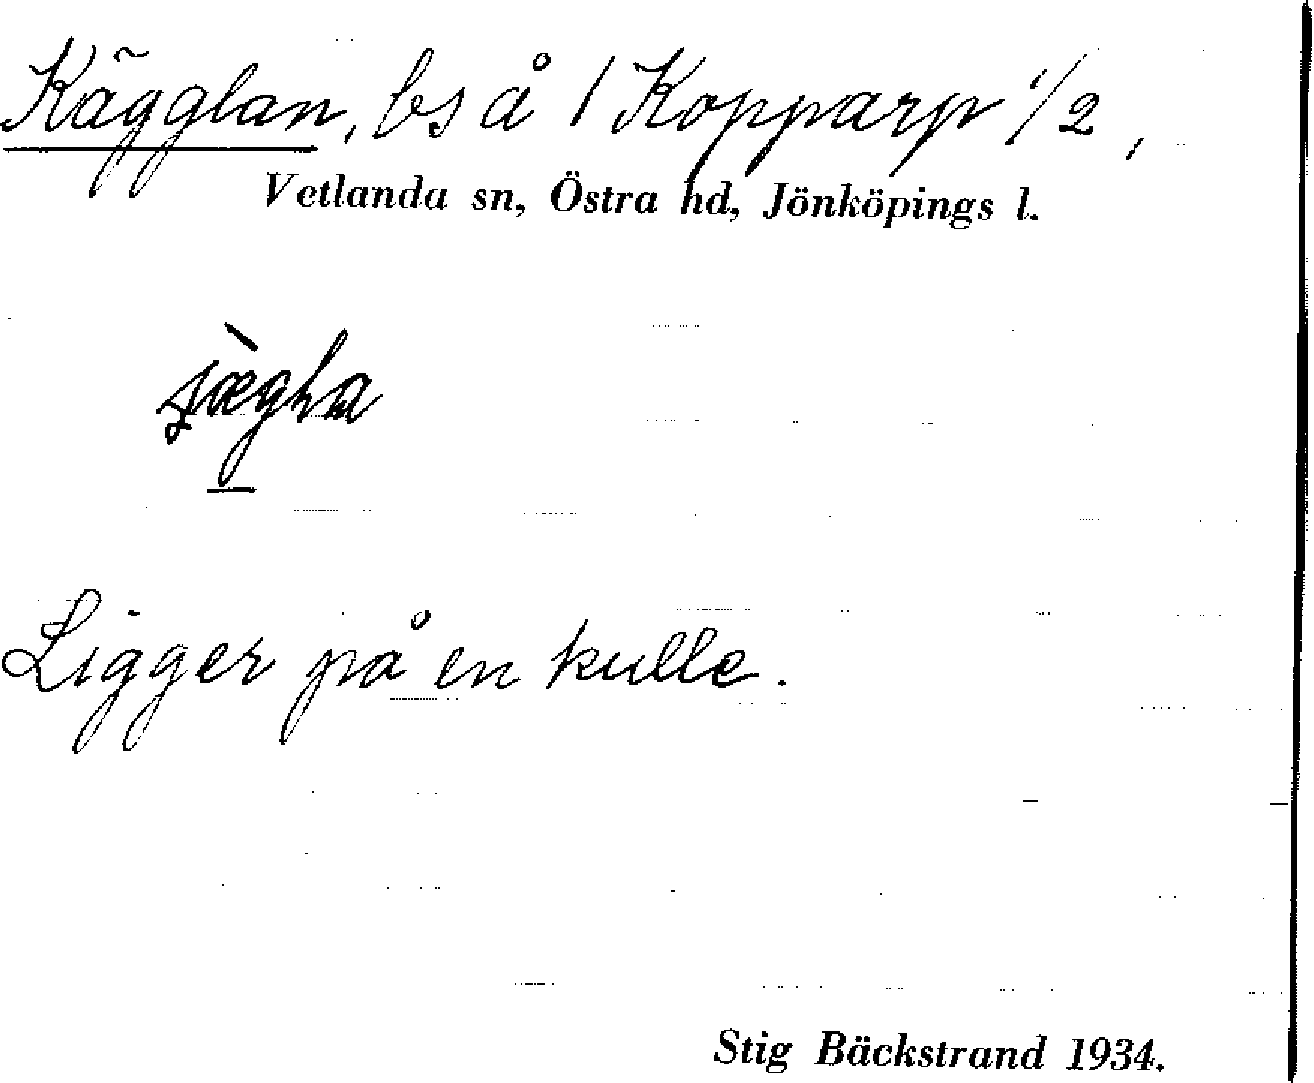 Kägglan, bs å 1 Kopparp 1/2,
Vetlanda sn, Östra hd, Jönköpings l.
Ligger på en kulle.
Stig Bäckstrand 1934.